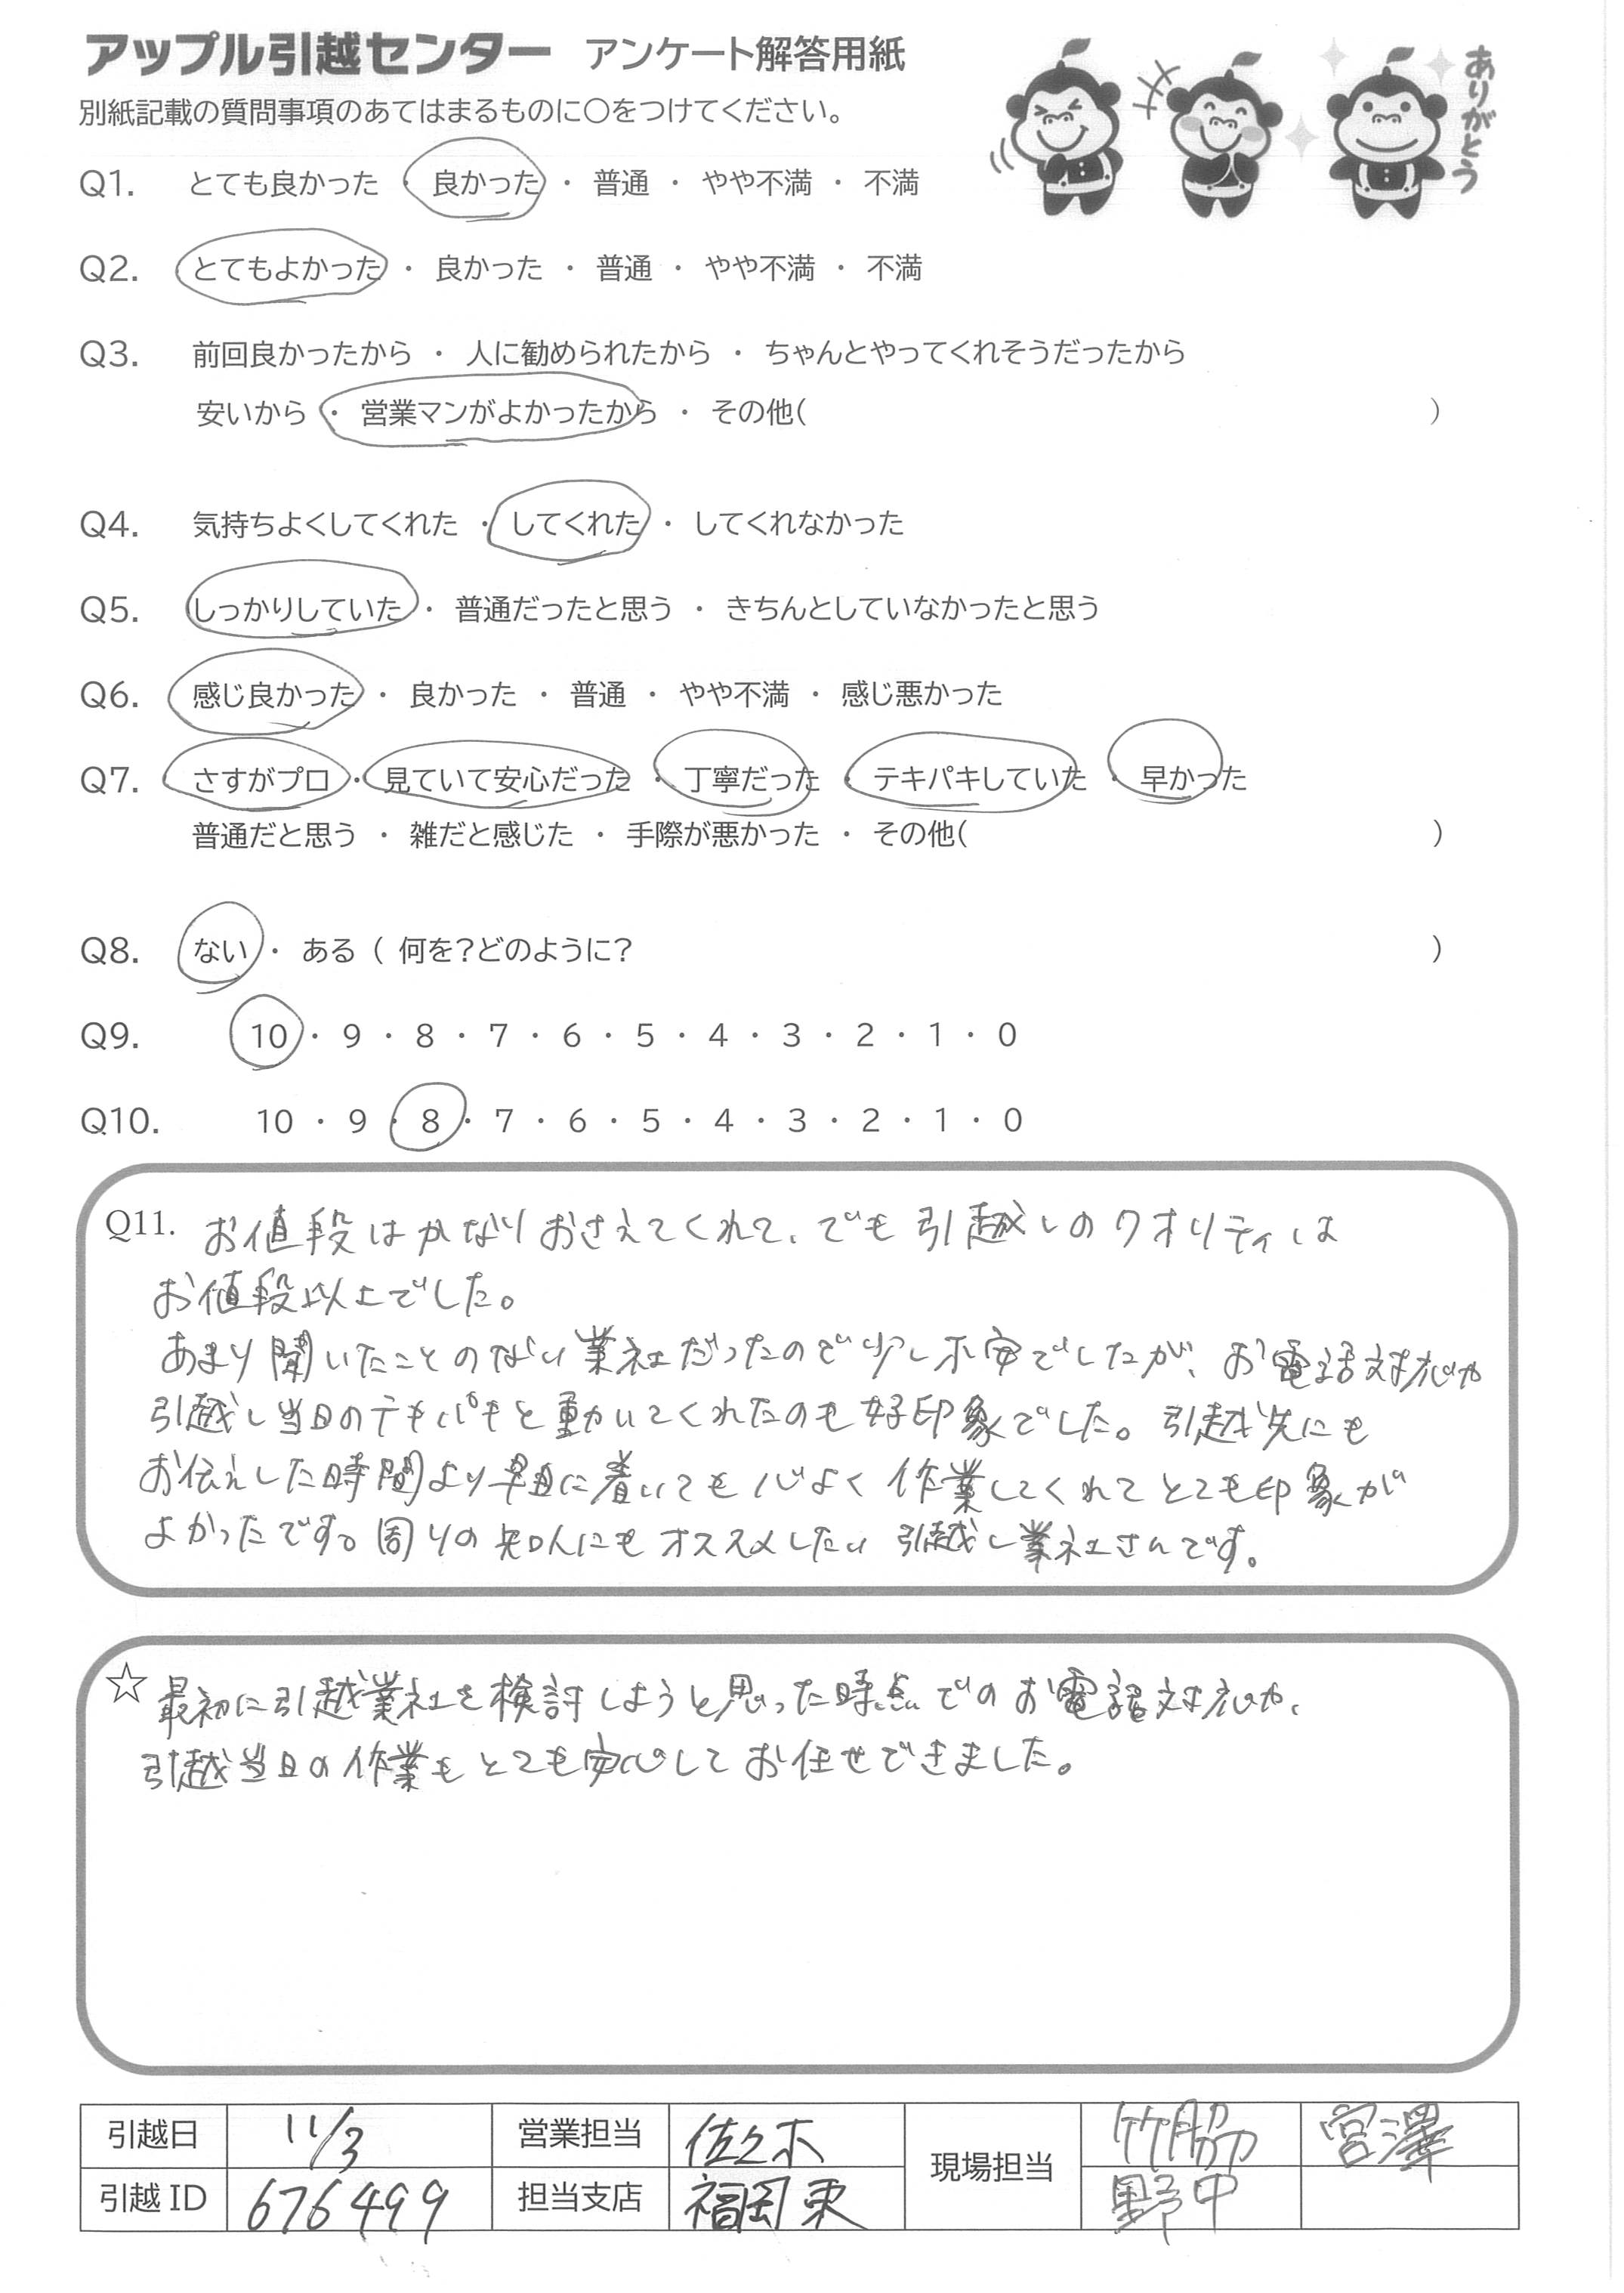 アップル引越センター アンケート解答用紙
ありがとう
別紙記載の質問事項のあてはまるものに〇をつけてください。
Q1. とても良かった ・ 良かった ・ 普通 ・ やや不満 ・ 不満
Q2. とてもよかった ・ 良かった ・ 普通 ・ やや不満 ・ 不満
Q3. 前回良かったから ・ 人に勧められたから ・ ちゃんとやってくれそうだったから
安いから ・ 営業マンがよかったから ・ その他( )
Q4. 気持ちよくしてくれた ・ してくれた ・ してくれなかった
Q5. しっかりしていた ・ 普通だったと思う ・ きちんとしていなかったと思う
Q6. 感じ良かった ・ 良かった ・ 普通 ・ やや不満 ・ 感じ悪かった
Q7. さすがプロ ・ 見ていて安心だった ・ 丁寧だった ・ テキパキしていた ・ 早かった
普通だと思う ・ 雑だと感じた ・ 手際が悪かった ・ その他( )
Q8. ない ・ ある ( 何を?どのように? )
Q9. 10 ・ 9 ・ 8 ・ 7 ・ 6 ・ 5 ・ 4 ・ 3 ・ 2 ・ 1 ・ 0
Q10. 10 ・ 9 ・ 8 ・ 7 ・ 6 ・ 5 ・ 4 ・ 3 ・ 2 ・ 1 ・ 0
Q11. お値段はかなりおさえてくれて、でも引越しのクオリティは
お値段以上でした。
あまり聞いたことのない業社だったので少し不安でしたが、お電話対応や
引越し当日のテキパキと動いてくれたのも好印象でした。引越先にも
お伝えした時間より早目に着いても心よく作業してくれてとても印象が
よかったです。周りの知人にもオススメしたい引越し業社さんです。
☆ 最初に引越業社を検討しようと思った時点でのお電話対応や、
引越当日の作業もとても安心してお任せできました。
引越日 11/3 営業担当 佐々木 現場担当 竹脇 宮澤
引越ID 676499 担当支店 福岡東 野中